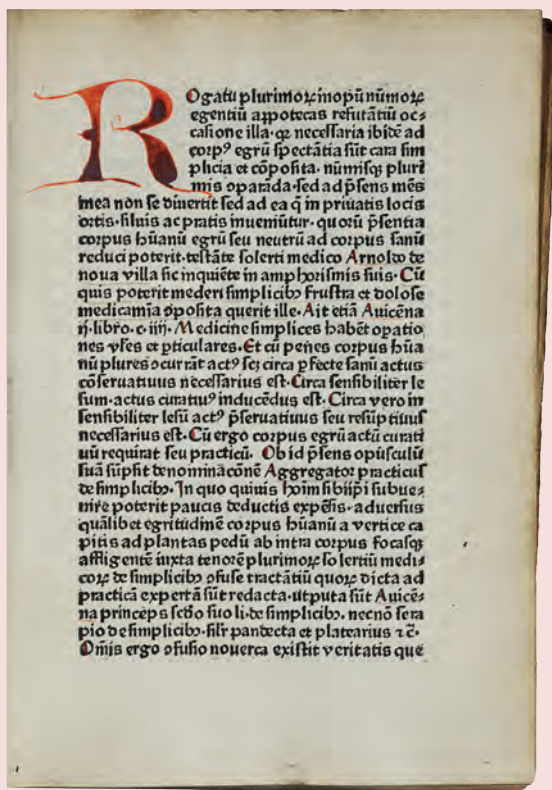 ROgatu plurimoꝝ inopū nūmoꝝ
egentiū appotecas refutātiū oc⸗
casione illa· qꝫ necessaria ibidē ad
corpꝰ egrū spectātia sūt cara sim
plicia et cōposita· nūmisqꝫ pluri
mis oparāda· sed ad p̄sens mēs
mea non se diuertit sed ad ea q̄ in priuatis locis
ortis· siluis ac pratis inueniūtur· quorū p̄sentia
corpus hūanū egrū seu neutrū ad corpus sanū
reduci poterit· testāte solerti medico Arnoldo de
noua villa sic inquiēte in amphorismis suis· Cū
quis poterit mederi simplicibꝫ frustra et dolose
medicamīa ꝯposita querit ille· Ait etiā Auicēna
ij· libro· c· iiij· Medicine simplices habēt opatio
nes vl̄es et ꝑticulares· Et cū penes corpus hūa
nū plures ꝯcurrāt actꝰ scꝫ circa ꝑfecte sanū actus
cōseruatiuus necessarius est· Circa sensibiliter le
sum· actus curatiuꝰ inducēdus est· Circa vero in
sensibiliter lesū actꝰ p̄seruatiuus seu resūptiuus
necessarius est· Cū ergo corpus egrū actū curati
uū requirat seu practicū· Ob id p̄sens opusculū
suā sūpsit denominacōnē Aggregator practicus
de simplicibꝫ· In quo quiuis hoīm sibiip̄i subue⸗
nire poterit paucis deductis expēsis· aduersus
quālibet egritudinē corpus hūanū a vertice ca
pitis ad plantas pedū ab intra corpus focasqꝫ
affligentē iuxta tenorē plurimoꝝ solertiū medi⸗
coꝝ de simplicibꝫ ꝯfuse tractātiū quoꝝ dicta ad
practicā expertā sūt redacta· utputa sūt Auicē⸗
na princeps scd̄o suo li· de simplicibꝫ· necnō sera
pio de simplicibꝫ· sil̄r pandecta et platearius ⁊ c̄·
Om̄is ergo ꝯfusio nouerca existit veritatis que